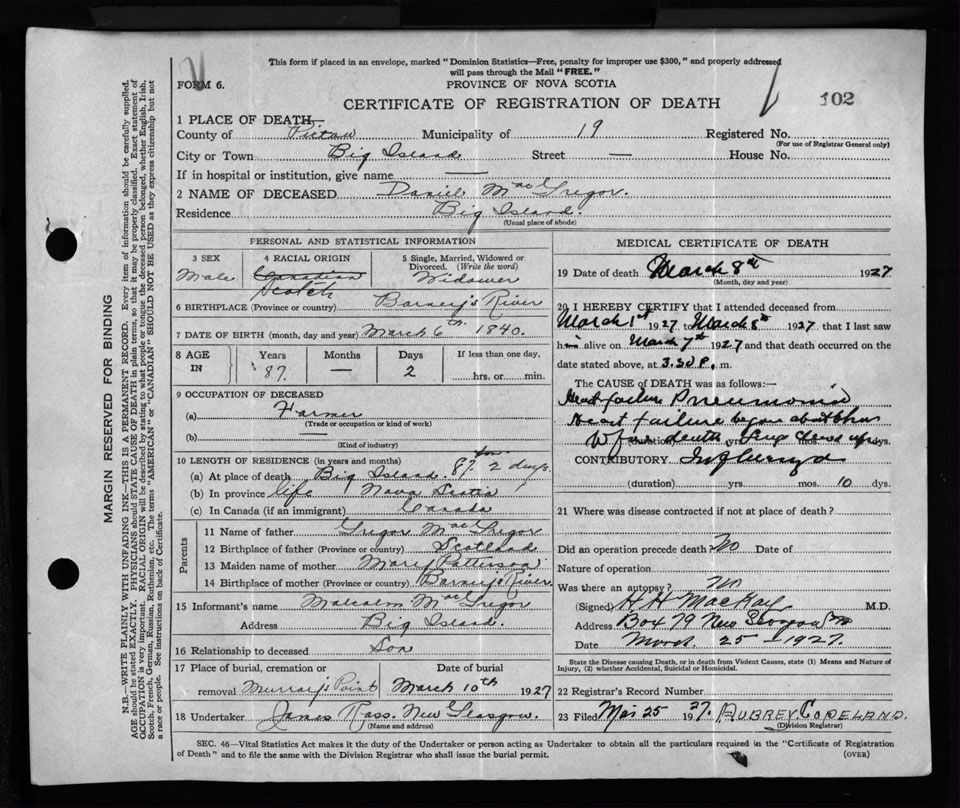 This form if placed in an envelope, marked "Dominion Statistics—Free, penalty for improper use $300," and properly addressed
will pass through the Mail "FREE."
FORM 6.
PROVINCE OF NOVA SCOTIA
CERTIFICATE OF REGISTRATION OF DEATH
102
1 PLACE OF DEATH—
County of Pictou Municipality of 19 Registered No.
(For use of Registrar General only)
City or Town Big Island Street — House No.
If in hospital or institution, give name —
2 NAME OF DECEASED Daniel MacGregor.
Residence Big Island.
(Usual place of abode)
PERSONAL AND STATISTICAL INFORMATION
3 SEX
Male
4 RACIAL ORIGIN
Canadian
Scotch
5 Single, Married, Widowed or Divorced. (Write the word)
Widower
6 BIRTHPLACE (Province or country) Barney's River
7 DATE OF BIRTH (month, day and year) March 6th 1840.
8 AGE IN
Years
87.
Months
—
Days
2
If less than one day,
hrs. or min.
9 OCCUPATION OF DECEASED
(a) Farmer
(Trade or occupation or kind of work)
(b) —
(Kind of industry)
10 LENGTH OF RESIDENCE (in years and months)
(a) At place of death Big Island. 87 years 2 days
(b) In province life Nova Scotia
(c) In Canada (if an immigrant) Canada
Parents
11 Name of father Gregor MacGregor
12 Birthplace of father (Province or country) Scotland
13 Maiden name of mother Mary Patterson
14 Birthplace of mother (Province or country) Barney's River
15 Informant's name Malcolm MacGregor
Address Big Island.
16 Relationship to deceased Son
17 Place of burial, cremation or
removal Murray's Point
Date of burial
March 10th 1927
18 Undertaker James Ross. New Glasgow.
and address)
MEDICAL CERTIFICATE OF DEATH
19 Date of death March 8th 1927
(Month, day and year)
20 I HEREBY CERTIFY that I attended deceased from
March 1st 1927 to March 8th 1927 that I last saw
him alive on March 7th 1927 and that death occurred on the
date stated above, at 3.30 P. m.
The CAUSE OF DEATH was as follows:
Heart failure Pneumonia
Heart failure began about
(duration) death yrs. days.
CONTRIBUTORY Influenza
(duration) yrs. mos. 10 dys.
21 Where was disease contracted if not at place of death?
Did an operation precede death? No Date of
Nature of operation
Was there an autopsy? No
(Signed) H H MacKay M.D.
Address Box 79 New Glasgow NS
Date March 25 — 1927.
State the Disease causing Death, or in death from Violent Causes, state (1) Means and Nature of
Injury, (2) whether Accidental, Suicidal or Homicidal.
22 Registrar's Record Number
23 Filed Mar 25 1927. AUBREY COPELAND.
(Division Registrar)
SEC. 46—Vital Statistics Act makes it the duty of the Undertaker or person acting as Undertaker to obtain all the particulars required in the "Certificate of Registration
of Death" and to file the same with the Division Registrar who shall issue the burial permit.
(OVER)
MARGIN RESERVED FOR BINDING
N.B.—WRITE PLAINLY WITH UNFADING INK—THIS IS A PERMANENT RECORD. Every item of information should be carefully supplied.
AGE should be stated EXACTLY. PHYSICIANS should STATE CAUSE OF DEATH in plain terms, so that it may be properly classified. Exact statement of
OCCUPATION is very important. RACIAL ORIGIN will be described by stating to what people or tongue the deceased person belonged, whether English, Irish,
Scotch, French, German, Russian, Ruthenian, etc. The terms "AMERICAN" or "CANADIAN" SHOULD NOT BE USED as they express citizenship but not
a race or people. See instructions on back of Certificate.